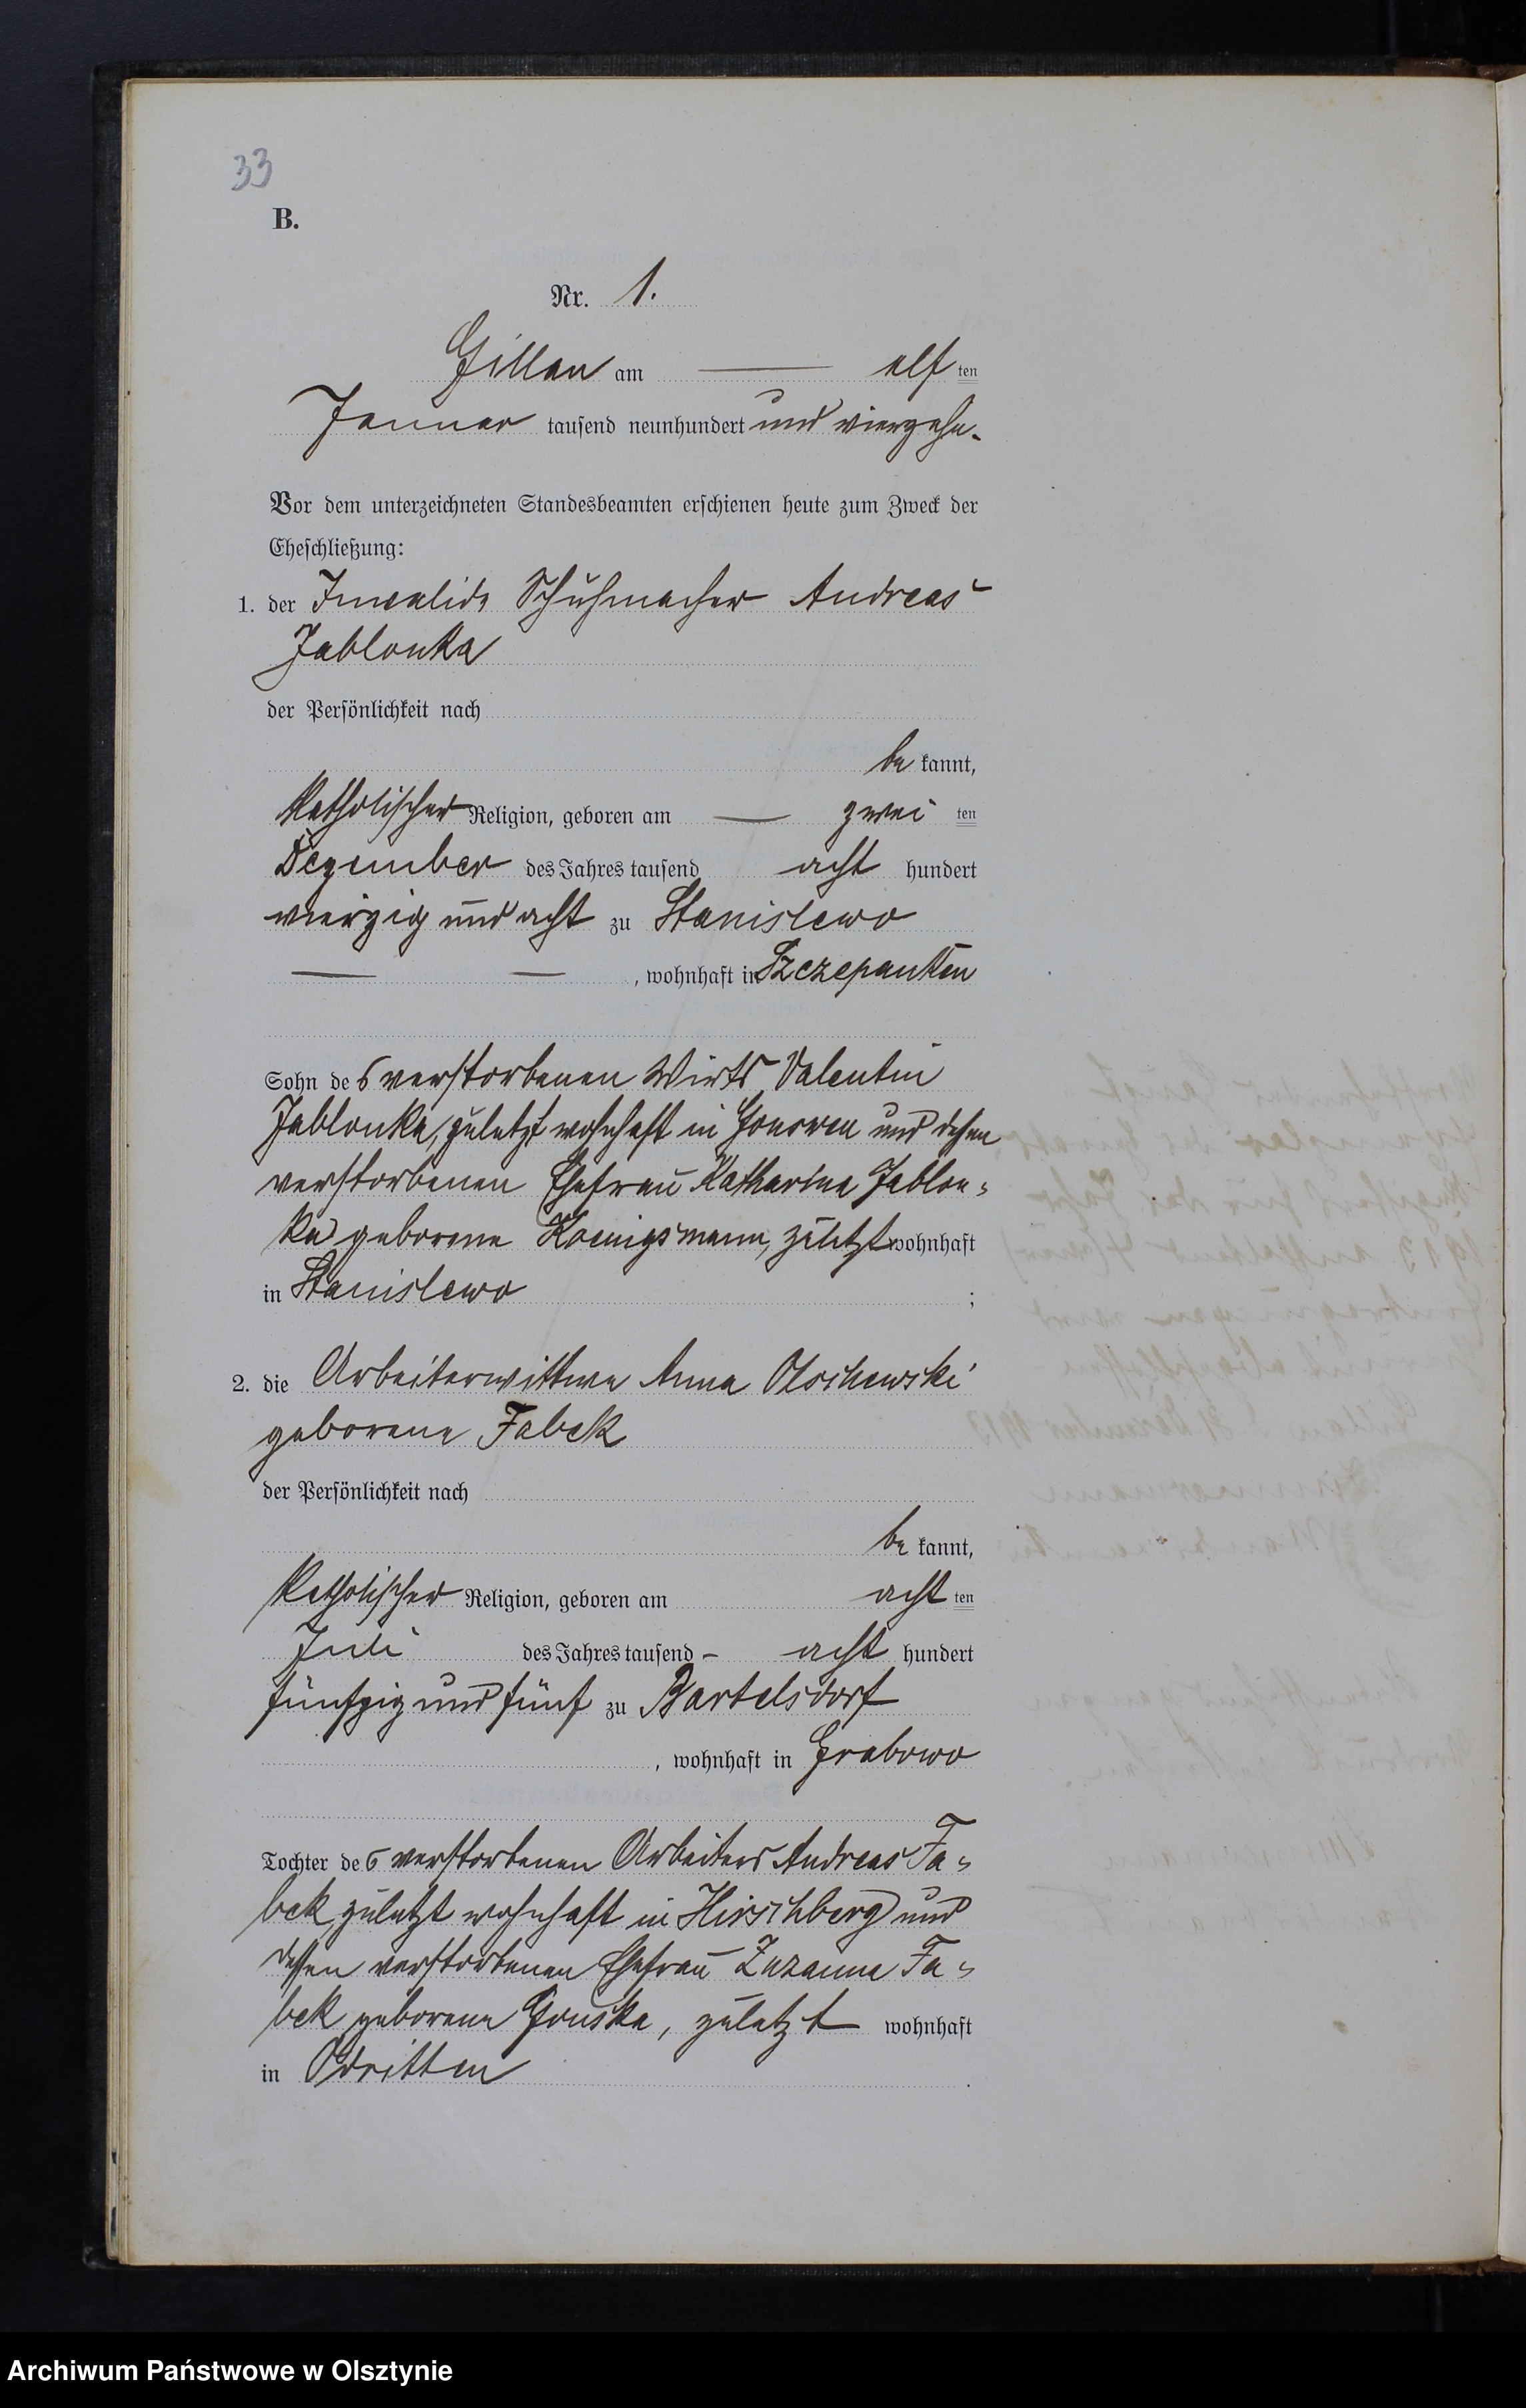 33
B.
Nr. 1.
Gillau am elf ten
Januar tausend neunhundert und vierzehn.
Vor dem unterzeichneten Standesbeamten erschienen heute zum Zweck der
Eheschließung:
1. der Invalide Schuhmacher Andreas
Jablonka
der Persönlichkeit nach
be kannt,
katholischer Religion, geboren am zwei ten
Dezember des Jahres tausend acht hundert
vierzig und acht zu Stanislewo
, wohnhaft in Szczepanken
Sohn des verstorbenen Wirts Valentin
Jablonka, zuletzt wohnhaft in Gonswen und dessen
verstorbenen Ehefrau Katharina Jablon-
ka geborene Koenigsmann, zuletzt wohnhaft
in Stanislewo ;
2. die Arbeiterwittwe Anna Olschewski
geborene Fabek
der Persönlichkeit nach
be kannt,
katholischer Religion, geboren am acht ten
Juli des Jahres tausend - acht hundert
fünfzig und fünf zu Bartelsdorf
, wohnhaft in Grabowo
Tochter des verstorbenen Arbeiters Andreas Fa-
bek zuletzt wohnhaft in Hirschberg und
dessen verstorbenen Ehefrau Zuzanna Fa-
bek geborene Gonska, zuletzt wohnhaft
in Odritten .
Archiwum Państwowe w Olsztynie